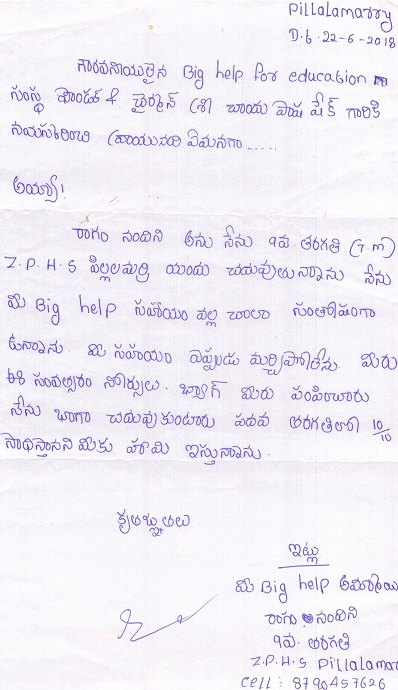 Pillalamarry
D.t. 22-6-2018
గౌరవనీయులైన Big help for education
సంస్థ ఫౌండర్ & ఛైర్మెన్ శ్రీ చాందు పాషా షేక్ గారికి
నమస్కరించి వ్రాయునది ఏమనగా .....
అయ్యా!
రాగం నందిని అను నేను 9వ తరగతి (T.M)
Z.P.H.S పిల్లలమర్రి యందు చదువుతున్నాను నేను
మీ Big help సహాయం వల్ల చాలా సంతోషంగా
ఉన్నాను. మీ సహాయం ఎప్పుడు మర్చిపోలేను. మీరు
ఈ సంవత్సరం నోట్సులు. బ్యాగ్ మీరు పంపించారు
నేను బాగా చదువుకుంటారు పదవ తరగతిలో 10/10
సాధిస్తానని మీకు హామి ఇస్తున్నాను.
కృతజ్ఞతలు
ఇట్లు
మీ Big help అమ్మాయి
రాగం నందిని
9వ తరగతి
Z.P.H.S Pillalamar
cell: 8790457626